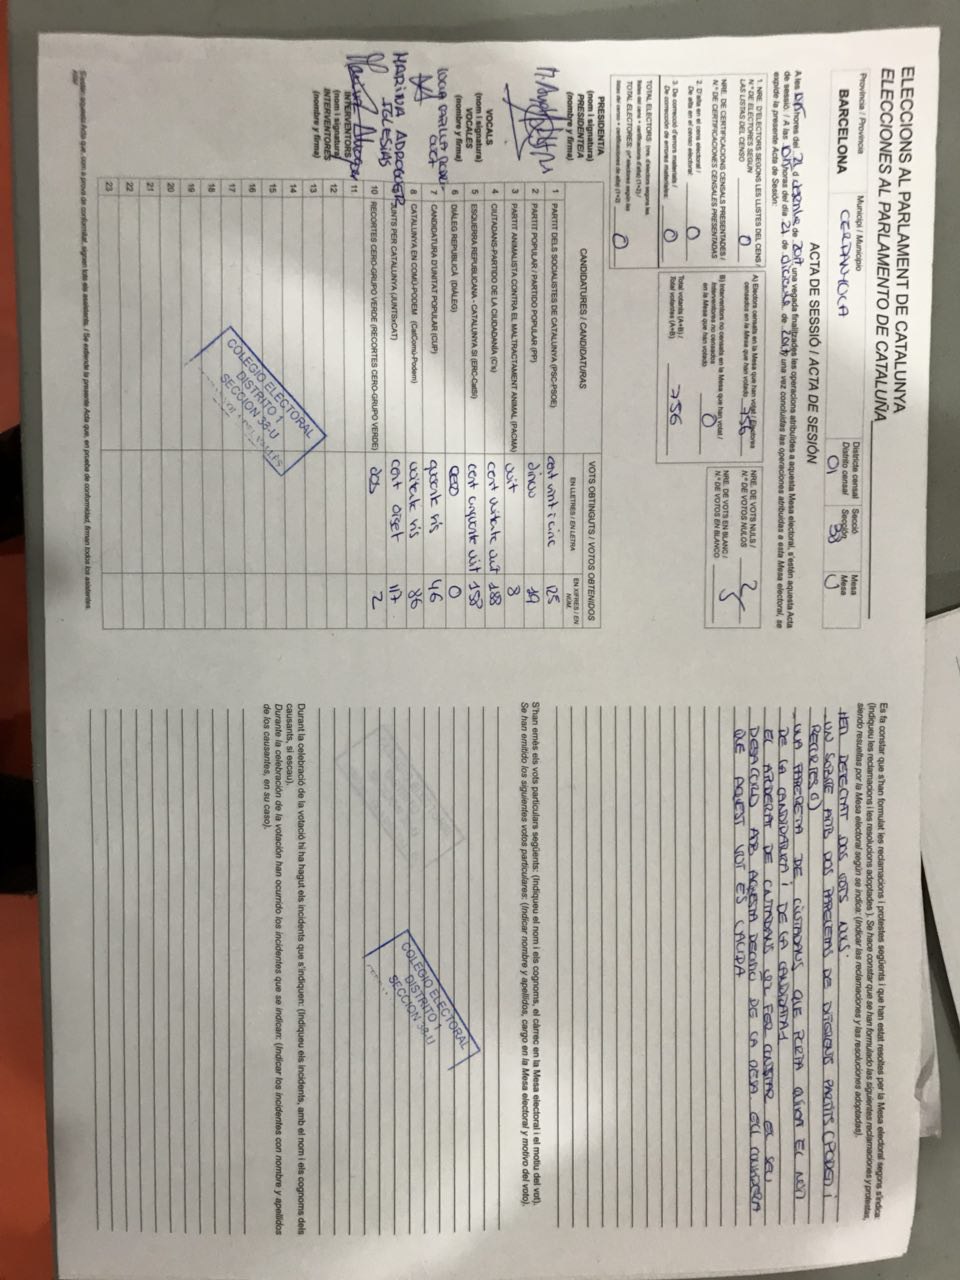 ELECCIONS AL PARLAMENT DE CATALUNYA
ELECCIONES AL PARLAMENTO DE CATALUÑA
Província / Provincia
BARCELONA
Municipi / Municipio
CERDANYOLA
Districte censal
Distrito censal
01
Secció
Sección
38
Mesa
Mesa
U
ACTA DE SESSIÓ / ACTA DE SESIÓN
A les hores del 21 d de 2017 una vegada finalitzades les operacions atribuïdes a aquesta Mesa electoral, s'estén aquesta Acta
de sessió. / A las horas del día 21 de diciembre de 2017 una vez concluidas las operaciones atribuidas a esta Mesa electoral, se
expide la presente Acta de Sesión:
1. NRE. D'ELECTORS SEGONS LES LLISTES DEL CENS /
N.º DE ELECTORES SEGÚN
LAS LISTAS DEL CENSO
0
NRE. DE CERTIFICACIONS CENSALS PRESENTADES /
N.º DE CERTIFICACIONES CENSALES PRESENTADAS
2. D'alta en el cens electoral /
De alta en el censo electoral
0
3. De correcció d'errors materials /
De corrección de errores materiales:
0
TOTAL ELECTORS:
TOTAL ELECTORES:
0
A) Electors censats en la Mesa que han votat / Electores
censados en la Mesa que han votado 756
B) Interventors no censats en la Mesa que han votat /
Interventores no censados
en la Mesa que han votado
0
Total votants (A+B) /
Total votantes (A+B)
756
NRE. DE VOTS NULS /
N.º DE VOTOS NULOS
2
NRE. DE VOTS EN BLANC /
N.º DE VOTOS EN BLANCO
5
CANDIDATURES / CANDIDATURAS
VOTS OBTINGUTS / VOTOS OBTENIDOS
EN LLETRES / EN LETRA
EN XIFRES / EN NÚM.
1 PARTIT DELS SOCIALISTES DE CATALUNYA (PSC-PSOE) cent vint i cinc 125
2 PARTIT POPULAR / PARTIDO POPULAR (PP) dinou 19
3 PARTIT ANIMALISTA CONTRA EL MALTRACTAMENT ANIMAL (PACMA) vuit 8
4 CIUTADANS-PARTIDO DE LA CIUDADANÍA (C's) cent vuitanta vuit 188
5 ESQUERRA REPUBLICANA - CATALUNYA SÍ (ERC-CatSí) cent cinquanta vuit 158
6 DIÀLEG REPUBLICÀ (DIÀLEG) zero 0
7 CANDIDATURA D'UNITAT POPULAR (CUP) quaranta sis 46
8 CATALUNYA EN COMÚ-PODEM (CatComú-Podem) vuitanta sis 86
9 JUNTS PER CATALUNYA (JUNTSxCAT) cent disset 117
10 RECORTES CERO-GRUPO VERDE (RECORTES CERO-GRUPO VERDE) dos 2
11
12
13
14
15
16
17
18
19
20
21
22
23
PRESIDENT/A
(nom i signatura)
PRESIDENTE/A
(nombre y firma)
VOCALS
(nom i signatura)
VOCALES
(nombre y firma)
MARINA ADROGUER
IGLESIAS
INTERVENTORS
(nom i signatura)
INTERVENTORES
(nombre y firma)
COLEGIO ELECTORAL
DISTRITO 1
SECCION 38-U
Es fa constar que s'han formulat les reclamacions i protestes següents i que han estat resoltes per la Mesa electoral segons s'indica
(Indiqueu les reclamacions i les resolucions adoptades). Se hace constar que se han formulado las siguientes reclamaciones y protestas,
siendo resueltas por la Mesa electoral según se indica: (Indicar las reclamaciones y las resoluciones adoptadas).
HEM DETECTAT DOS VOTS NULS:
- UN SOBRE AMB DOS PAPERETAS DE DIFERENTS PARTITS (PODEM I
RECORTES 0)
- UNA PAPERETA DE CIUTADANS QUE PORTA EL NOM
DE LA CANDIDATURA I DE LA CANDIDATA.
EL APODERAT DE CIUTADANS VOL FER CONSTAR EL SEU
DESACORD AB AQUESTA DECISIÓ DE LA MESA CONSIDERA
QUE AQUEST VOT ÉS VALIDA
S'han emès els vots particulars següents: (Indiqueu el nom i els cognoms, el càrrec en la Mesa electoral i el motiu del vot).
Se han emitido los siguientes votos particulares: (Indicar nombre y apellidos, cargo en la Mesa electoral y motivo del voto).
COLEGIO ELECTORAL
DISTRITO 1
SECCION 38-U
Durant la celebració de la votació hi ha hagut els incidents que s'indiquen: (Indiqueu els incidents, amb el nom i els cognoms dels
causants, si escau).
Durante la celebración de la votación han ocurrido los incidentes que se indican: (Indicar los incidentes con nombre y apellidos
de los causantes, en su caso).